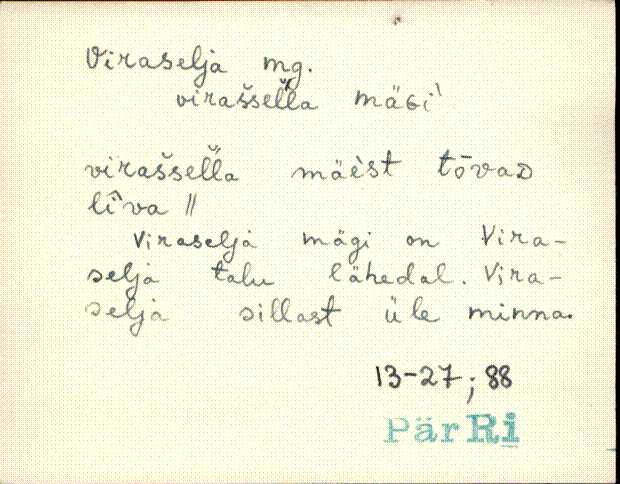 Viraselja mg.
viraššel̆l̆a mäGi'
virašsel̆l̆a mäèst tōvaD
lîva //
Viraselja mägi on Vira-
selja talu lähedal. Vira-
selja sillast üle minna.
13-27; 88
PärRi